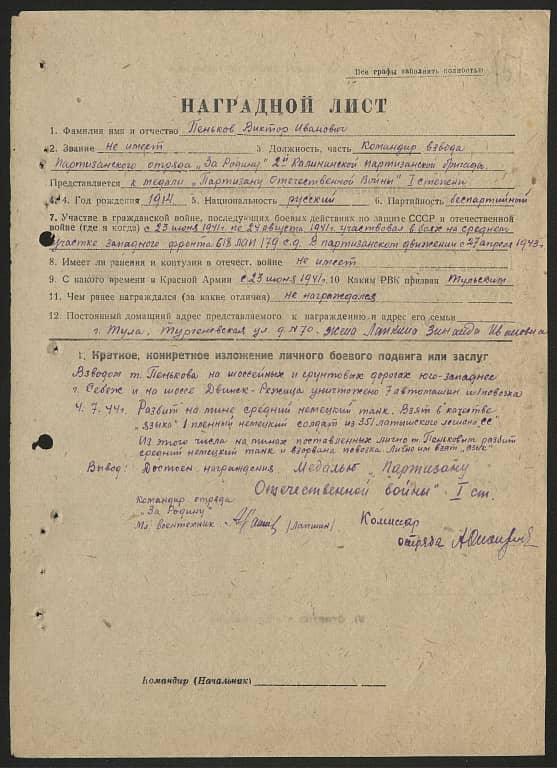 Все графы заполнить полностью
НАГРАДНОЙ ЛИСТ
1. Фамилия имя и отчество Пеньков Виктор Иванович
2. Звание не имеет 3. Должность, часть Командир взвода
партизанского отряда "За Родину" 2й Калининской партизанской бригады.
Представляется к медали "Партизану Отечественной Войны" I степени
4. Год рождения 1914 5. Национальность русский 6. Партийность беспартийный
7. Участие в гражданской войне, последующих боевых действиях по защите СССР и отечественной
войне (где и когда) с 23 июня 1941г. по 24 августа 1941г. участвовал в боях на среднем
участке западного фронта 618 ЛАП 179 с.д. В партизанском движении с 27 апреля 1943г.
8. Имеет ли ранения и контузии в отечест. войне не имеет
9. С какого времени в Красной Армии с 23 июня 1941г. 10 Каким РВК призван Тульским
11. Чем ранее награждался (за какие отличия) не награждался
12. Постоянный домашний адрес представляемого к награждению и адрес его семьи
г. Тула, Тургеневская ул д. №70. жена Лапкина Зинаида Ивановна
1. Краткое, конкретное изложение личного боевого подвига или заслуг
Взводом т. Пенькова на шоссейных и грунтовых дорогах юго-западнее
г. Себеж и на шоссе Двинск-Режица уничтожено 7 автомашин и 1 повозка
4.7.44г. Разбит на мине средний немецкий танк. Взят в качестве
"языка" 1 пленный немецкий солдат из 351 латышского "СС"
Из этого числа на минах поставленных лично т. Пеньковым разбит
средний немецкий танк и взорвана повозка. Лично им взят "язык"
Вывод: Достоен награждения Медалью "Партизану
Отечественной войны" I ст.
Командир отряда
"За Родину"
Мл. воентехник (Лапшин)
Комиссар
отряда
Командир (Начальник)